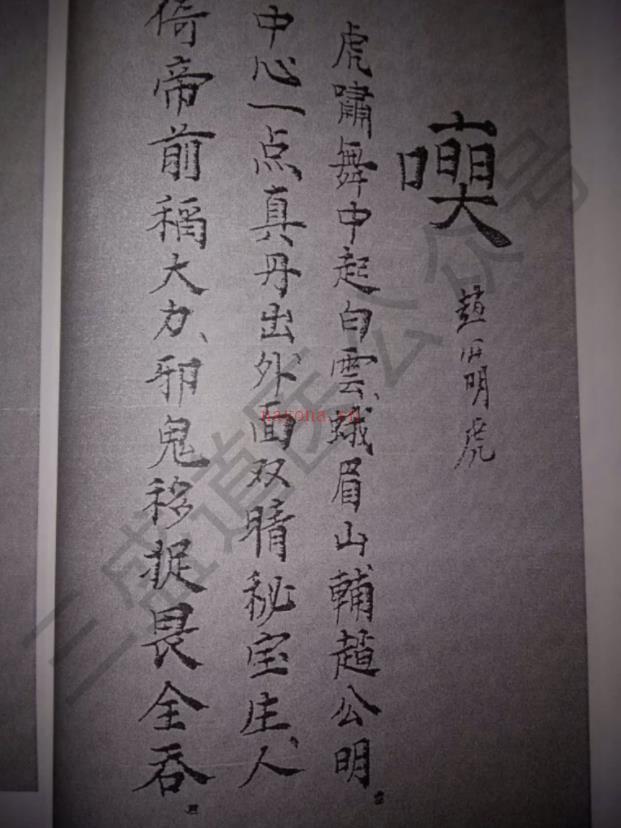 趙公明虎
虎嘯舞中起白雲、蛾眉山輔趙公明
中心一点真丹出、外面双睛秘宝庄、人
倚帝前稱大力、邪鬼移捉畏全吞
三盛道医公众号